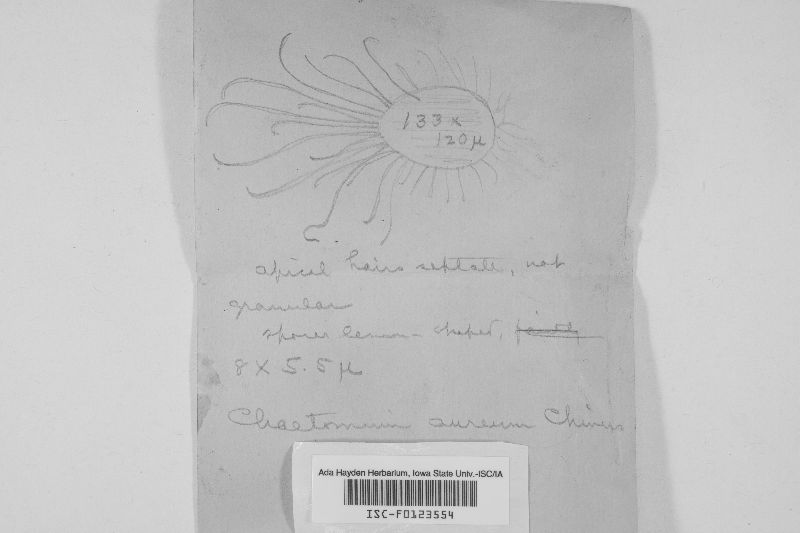 133 x
120 µ
apical hairs septate, not
granular
spores lemon-shaped,
8 X 5.5 µ
Chaetomium aureum Chivers
Ada Hayden Herbarium, Iowa State Univ.-ISC/IA
ISC-F0123554